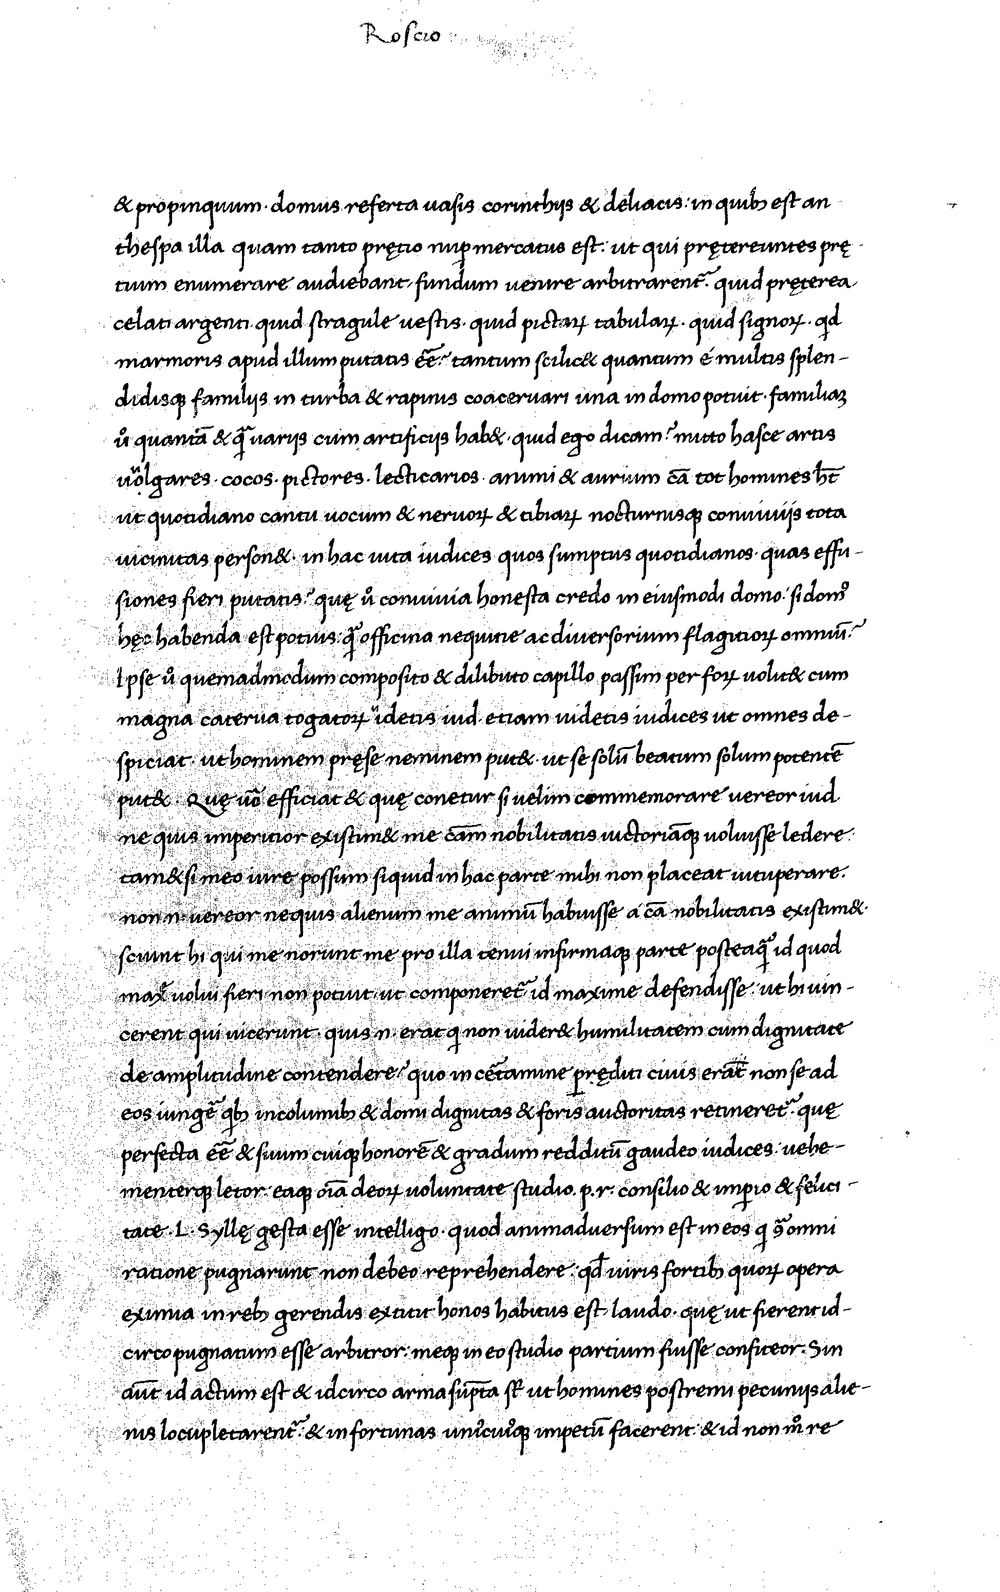 Roscio
& propinquum. domus referta uasis corinthijs & deliacis: in quibꝫ est an
thespa illa quam tanto pręcio nuꝑ mercatus est: ut qui prętereuntes prę
tium enumerare audiebant fundum uenire arbitrarent᷑? quid pręterea
celati argenti quid stragule uestis. quid pictaꝝ tabulaꝝ. quid signoꝝ. qd
marmoris apud illum putatis ēē? tantum scilic& quantum é multis splen-
didisqꝫ familijs in turba & rapinis coaceruari una in domo potuit. familiaꝫ
u͛o quantā & q̃ uarijs cum artificijs hab&. quid ego dicam? mitto hasce artis
uolgares. cocos. pictores. lecticarios. animi & aurium cā tot homines hn̄t
ut quotidiano cantu uocum & neruoꝝ & tibiaꝝ nocturnisqꝫ conuiuijs tota
uicinitas person&. in hac uita iudices quos sumptus quotidianos. quas effu-
siones fieri putatis? quę u͛o conuiuia honesta credo in eiusmodi domo. si dom᷒
hęc habenda est potius q̃ officina nequitie ac diuersorium flagitioꝝ omniū?
Ipse u͛o quemadmodum composito & dilibuto capillo passim per foꝝ uolit& cum
magna caterua togatoꝝ uidetis iud. etiam uidetis iudices ut omnes de-
spiciat. ut hominem pręse neminem put&. ut se solū beatum solum potentē
put&. Quę uo᷑ efficiat & quę conetur si uelim commemorare uereor iud
ne quis imperitior existim& me cām nobilitatis uictoriāqꝫ uoluisse ledere.
tam&si meo iure possum siquid in hac parte mihi non placeat uituperare.
non n. uereor nequis alienum me animū habuisse a cā nobilitatis existim&.
sciunt hi qui me norunt me pro illa tenui infirmaqꝫ parte posteaq̃ id quod
max͛ uolui fieri non potuit ut componeret᷑ id maxime defendisse. ut hi uin-
cerent qui uicerunt. quis n. erat q̇ non uider& humilitatem cum dignitate
de amplitudine contendere? quo in c͛tamine pręditi ciuis erat non se ad
eos iunge͛ qbꝫ incolumibꝫ & domi dignitas & foris auctoritas retineret᷑. quę
perfecta ēē & suum cuiqꝫ honorē & gradum redditū gaudeo iudices. uehe-
menterqꝫ letor. eaqꝫ oīa deoꝝ uoluntate studio .p.r. consilio & imꝑio & felici-
tate .L. Syllę gesta esse intelligo. quod animaduersum est in eos q̇ 9̃ omni
ratione pugnarunt non debeo reprehendere. qd̄ uiris fortibꝫ quoꝝ opera
eximia in rebꝫ gerendis extitit honos habitus est laudo. quę ut fierent id-
circo pugnatum esse arbitror. meqꝫ in eo studio partium fuisse confiteor. Sin
aūt id actum est & idcirco arma sūpta st̄ ut homines postremi pecunijs alie-
nis locupletarent᷑. & in fortunas uniᵘcuiᵘsqꝫ impetū facerent. & id non m͛ re